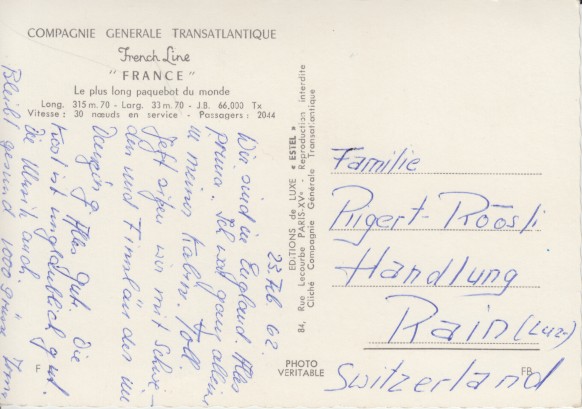 COMPAGNIE GENERALE TRANSATLANTIQUE
French Line
"FRANCE"
Le plus long paquebot du monde
Long. 315 m. 70 - Larg. 33 m. 70 - J.B. 66,000 Tx
Vitesse : 30 nœuds en service - Passagers : 2044
23. Feb 62.
Wir sind in England. Alles
prima. Ich ganz allein
in meiner Kabin. Toll
Jetzt sitzen wir mit Schwe-
den und Finnländer im
Dancing. Alles gut. Die
Kost ist unglaublich gut.
Die Musik auch.
Bleibt gesund 1000 Grüsse
EDITIONS de LUXE « ESTEL »
84, Rue Lecourbe PARIS-XVe - Reproduction interdite
Cliché Compagnie Générale Transatlantique
PHOTO
VERITABLE
F
FB
Familie
Rigert-Röösli
Handlung
Rain (Luz.)
Switzerland